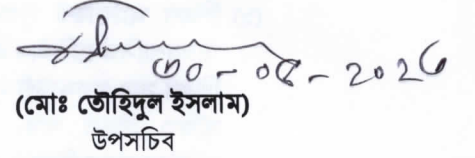 ৩০-০৫-২০২৬
(মোঃ তৌহিদুল ইসলাম)
উপসচিব